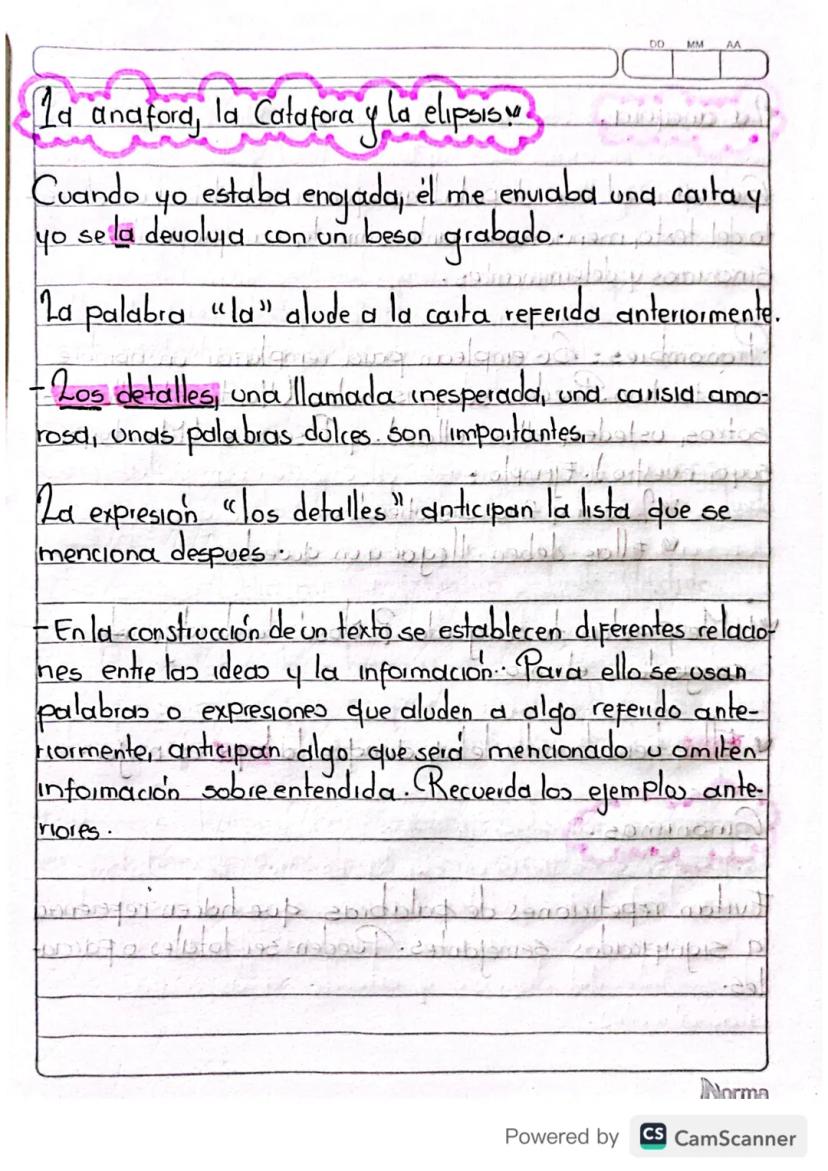 DD MM AA
La anafora, la Catafora y la elipsis
Cuando yo estaba enojada, él me enviaba una carta y
yo se la devolvia con un beso grabado.
La palabra "la" alude a la carta referida anteriormente.
- Los detalles, una llamada inesperada, una carisia amo-
rosa, unas palabras dulces son importantes.
La expresión "los detalles" anticipan la lista que se
menciona despues.
- En la construcción de un texto se establecen diferentes relacio-
nes entre las ideas y la información. Para ello se usan
palabras o expresiones que aluden a algo referido ante-
riormente, anticipan algo que será mencionado u omiten
información sobre entendida. Recuerda los ejemplos ante-
riores.
Norma
Powered by CS CamScanner